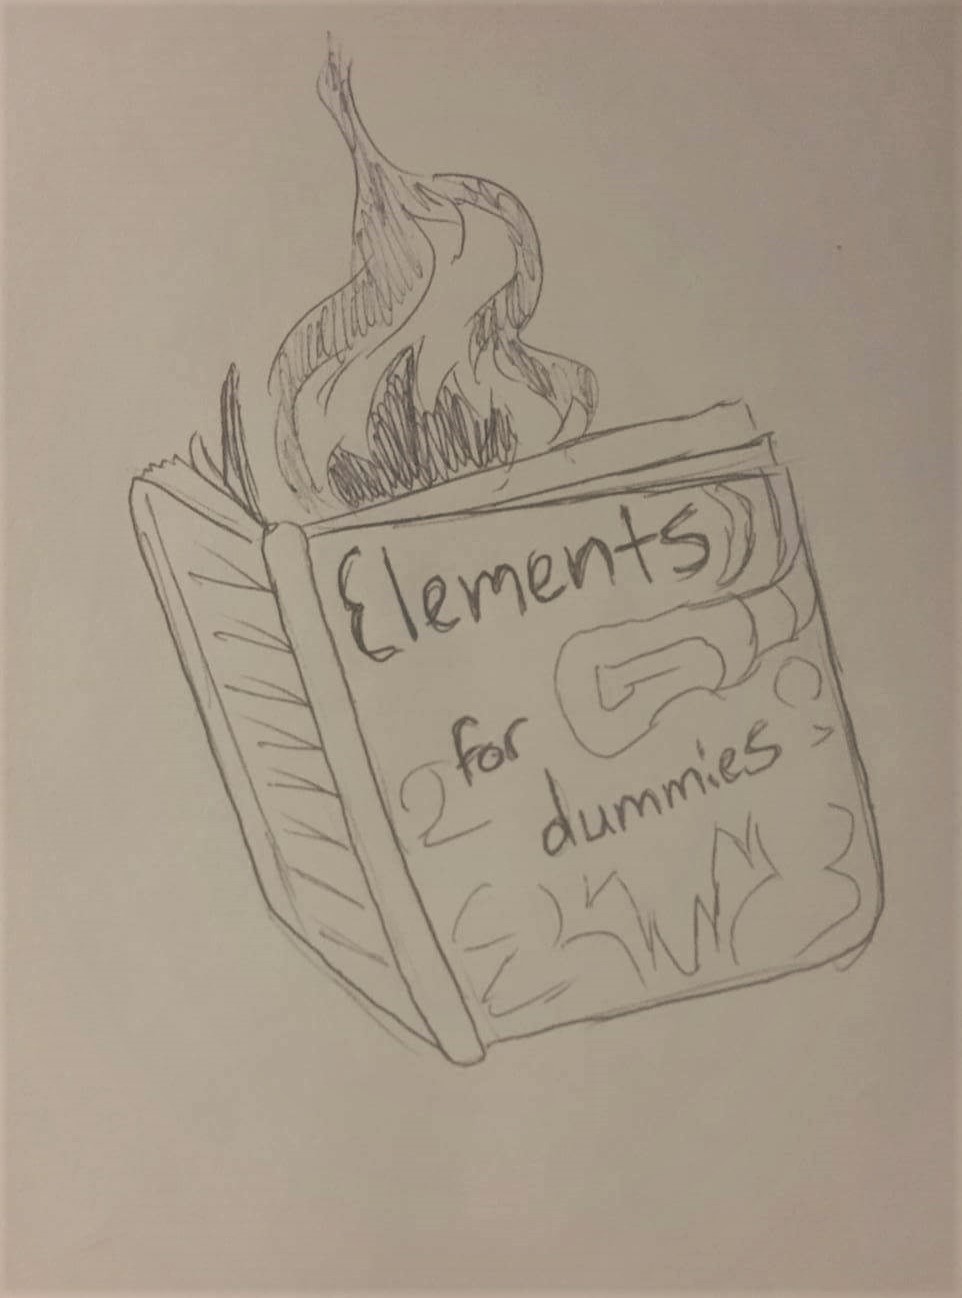 Elements
for
dummies